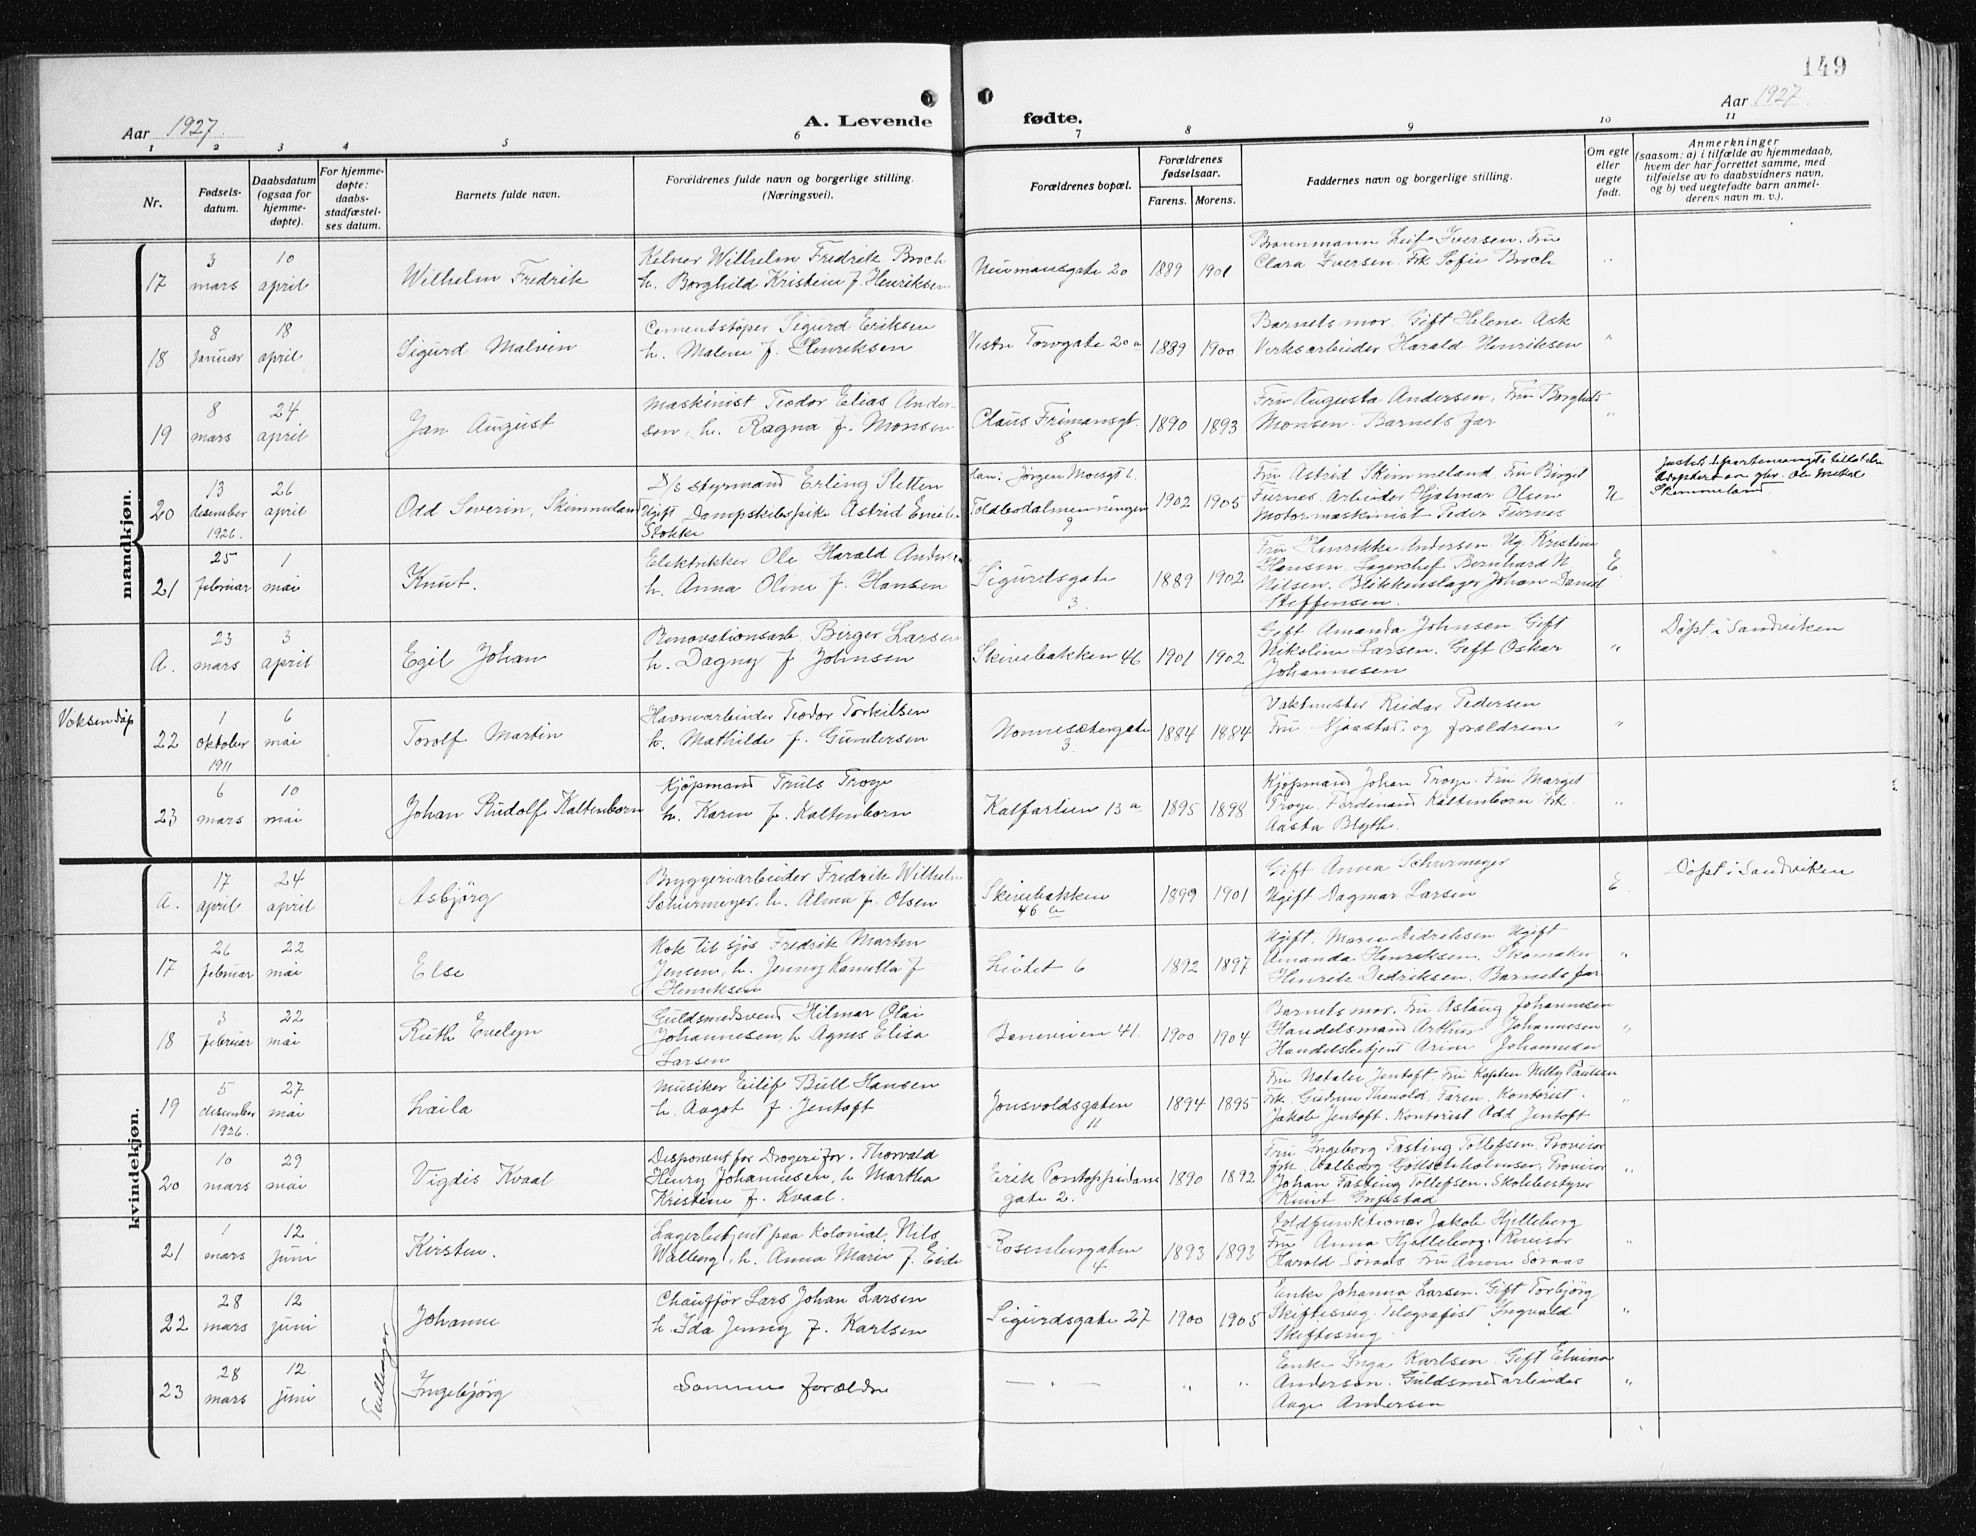 149
Aar 1927.
A. Levende
fødte.
Aar 1927
1 2 3 4 5 6 7 8 9 10 11
Nr.
Fødsels-
datum.
Daabsdatum
(ogsaa for
hjemme-
døpte).
For hjemme-
døpte:
daabs-
stadfæstel-
ses datum.
Barnets fulde navn.
Forældrenes fulde navn og borgerlige stilling.
(Næringsvei).
Forældrenes bopæl.
Forældrenes
fødselsaar.
Farens. Morens.
Faddernes navn og borgerlige stilling.
Om egte
eller
uegte
født.
Anmerkninger
(saasom: a) i tilfælde av hjemmedaab,
hvem der har forrettet samme, med
tilføielse av to daabsvidners navn,
og b) ved uegtefødte barn anmel-
derens navn m. v.).
mandkjøn.
17
3
mars
10
april
Wilhelm Fredrik
Kelner Wilhelm Fredrik Broch
h. Borghild Kristine f. Henriksen
Neumansgate 20
1889 1901
Leif Iversen. Fru
Clara Iversen. Frk Sofie Broch
"
18
8
januar
18
april
Sigurd Malvin
Cementstøper Sigurd Eriksen
h. Malene f. Henriksen
Vestre Torvgate 20a
1889 1900
Barnets mor. Gift Helene Ask
Verksarbeider Harald Henriksen
"
19
8
mars
24
april
Jan August
Maskinist Teodor Elias Ander-
sen, h. Ragna f. Monsen
Claus Frimansgt.
8
1890 1893
Fru Augusta Andersen, Fru Borghild
Monsen. Barnets far
"
20
13
desember
1926.
26
april
Odd Severin, Skimmeland
D/s styrmand Erling Sletten
Ugift Dampskibspike Astrid Emilie
Stokke
Jørgen Moesgt 6.
Toldbodalmenningen
9
1902 1905
Fru Astrid Skimmeland. Fru Birgit
Furnes. Arbeider Hjalmar Olsen
Motormaskinist Peder Furnes
U
Skimmeland.
21
25
februar
1
mai
Knut.
Elektrikker Ole Harald Andersen
h. Anna Oline f. Hansen
Sigurdsgate
3.
1889 1902
Fru Henrikke Andersen. Ug. Kristine
Hansen. Lagerchef Bernhard N
Nilsen. Blikkenslager Johan Daniel
Steffensen.
E
A.
23
mars
3
april
Egil Johan
Renovationsarb. Birger Larsen
h. Dagny f Johnsen
Skivebakken 46
1901 1902
Gift Amanda Johnsen. Gift
Nikoline Larsen. Gift Oskar
Johannesen
"
Døpt i Sandviken
Voksendåp
22
1
oktober
1911
6
mai
Torolf Martin
Havnearbeider Teodor Torkilsen
h. Mathilde f. Gundersen
Nonnesætergate
3.
1884 1884
Vaktmester Reidar Pedersen
Fru Njaastad, og forældrene
"
23
6
mars
10
mai
Johan Rudolf Kaltenborn
Kjøpmand Truls Troye
h. Karen f. Kaltenborn
Kalfarlien 13a
1895 1898
Kjøpmand Johan Troye. Fru Margit
Troye. Ferdinand Kaltenborn Frk
Aasta Blyth.
"
kvindekjøn.
A.
17
april
24
april
Asbjørg
Bryggeriarbeider Fredrik Wilhelm
Schurmeyer, h. Alma f. Olsen
Skivebakken
46 a
1899 1901
Gift Anna Schurmeyer
Ugift Dagmar Larsen
E.
Døpt i Sandviken
17
26
februar
22
mai
Else
Kok til sjøs Fredrik Martin
Jensen, h. Jenny Kamilla f
Henriksen
Livlet 6
1892 1897
Ugift. Marie Didriksen Ugift
Amanda Henriksen. Skomaker
Henrik Dedriksen. Barnets far
"
18
3
februar
22
mai
Ruth Evelyn
Guldsmedsvend Hilmar Olai
Johannesen, h Agnes Elisa
Larsen
Baneveien 41.
1900 1904
Barnets mor. Fru Aslaug Johannesen
Handelsmand Arthur Johannesen
Handelsbetjent Arine Johannesen
"
19
5
desember
1926.
27
mai
Laila
Musiker Eilif Bull Hansen
h. Aagot f. Jentoft
Jonsvoldsgaten
11
1894 1895
Fru Natalie Jentoft. Fru Kaptein Nelly Paulsen
Frk. Gudrun Thenold. Faren. Kontorist.
Jakob Jentoft. Kontorist Odd Jentoft
"
20
10
mars
29
mai
Vigdis Kvaal
Disponent for Drogerifor. Thorvald
Henry Johannesen, h Martha
Kristine f. Kvaal.
Erik Pontoppidans
gate 2.
1890 1892
Fru Ingeborg Fasting Tollefsen. Provisor
Frk. Valborg Gottschholmsen, Provisor
Johan Fasting Tollefsen. Skolebestyrer
Knut Gnjestad
"
21
1
mars
12
juni
Kirsten.
Lagerbetjent paa Kolonial, Nils
Walberg, h. Anna Marie f. Eide
Rosenbergaten
4
1893 1893
Toldfunktionær Jakob Hjelleberg
Fru Anna Hjelleberg. Revisor
Harald Søraas. Fru Anna Søraas
"
22
28
mars
12
juni
Johanne
Chauffør Lars Johan Larsen
h. Ida Jenny f. Karlsen
Sigurdsgate 27
1900 1905
Enke Johanna Larsen. Gift Torbjørg
Skiftesvig. Telegrafist Ingvald
Skiftesvig.
"
Tvillinger
23
28
mars
12
juni
Ingebjørg
Samme forældre
— " —
" "
Enke Inga Karlsen. Gift Elvina
Andersen. Guldsmedarbeider
Aage Andersen
"